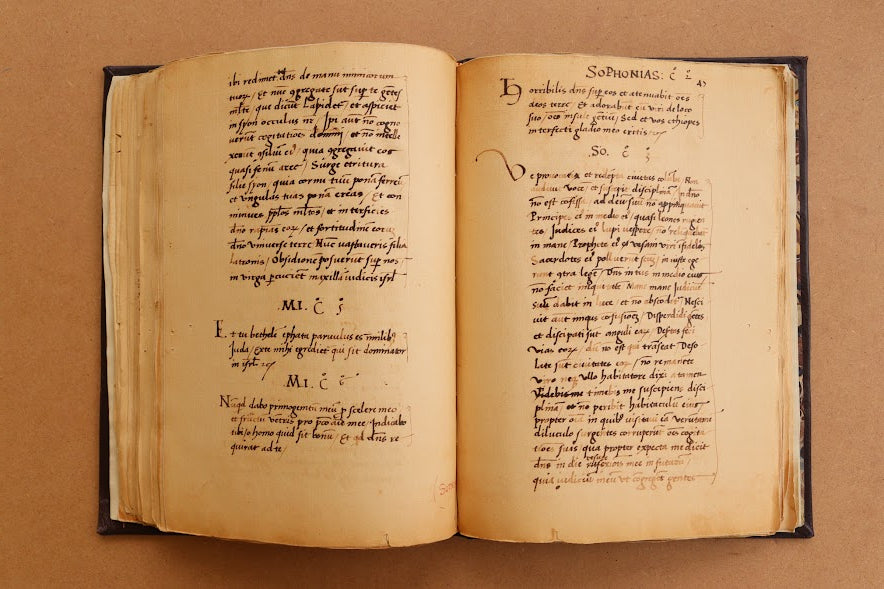 ibi redimet te dn̄s de manu inimicorum
tuoꝝ / Et nūc ꝯgregate sūt sup̄ te gētes
ml̄te, que dicūt Lapidet, et aspiciet
in syon occulus nr̄ / Ipi aūt nō cogno
verūt cogitatiões domini, et nō intelle
xerūt ꝯsiliū eiꝰ, quia ꝯgregavit eos
quasi fenū aree / Surge et tritura
filia syon, quia cornu tuū ponā ferreū
et ungulas tuas ponā ereas / Et com
minues pp̄los ml̄tos, et interficies
dn̄o rapias eoꝝ, et fortitudinē eoruȝ
dn̄o universe terre Nūc vastaveris filia
latronis, Obsidionē posuerūt sup̄ nos,
in virga percucient maxillā iudicis isrl̄
.MI. C̄ 5
Et tu bethelē ephrata parvulus es in milibꝰ
Juda, ex te mihi egrediet qui sit dominator
in isrl̄
.MI. C̄
Nūqd dabo primogenitū meū p̱ scelere meo
et fructū vētris pro pctō aīe mee, Indicabo
tibi o homo quid sit bonū, Et qd dn̄s re
quirat ad te /
SOPHONIAS: C̄ 2
Horribilis dn̄s sup̄ eos et atenuabit oēs
deos terre, Et adorabūt eū viri de loco
suo, oēs insule gētiū, Sed et vos ethiopes
interfecti gladio meo eritis
.SO. C̄ 3
Ve provocatrix et redēpta civitas colūba, Non
audivit vocē, et suscepit disciplinā, in dn̄o
nō est cōfissa, ad deū suū nō appīquavit
Principes eiꝰ in medio eiꝰ quasi leones rugiē
tes, Iudices eiꝰ lupi vespere, nō relīquebāt
in mane, Prophete eiꝰ vesani viri īfideles
Sacerdotes eiꝰ polluerūt sctū, iniuste ege
runt ꝯtra legē, Dn̄s iustus in medio eius
nō faciet iniquitatē Mane mane Iudiciū
suū dabit in luce, et nō abscōdet Nesci
vit aūt iniquꝰ cōfusionē, Disperdidi gētes
et dissipati sūt anguli eaꝝ, Desertas feci
vias eoꝝ, dū nō est qui trāseat Deso
late sūt civitates eoꝝ, nō remanēte
viro neqȝ ullo habitatore dixi attamen
timebis me suscipiens disci
plinā, et nō peribit habitaculū eius,
propter oīa in quibꝰ visitavi eā verūtamē
diluculo surgētes corruperūt oēs cogita
tiōes suas qua propter expecta me dicit
dn̄s in die resurexiōis mee in futurū,
quia iudiciū meū ut cōgregē gentes